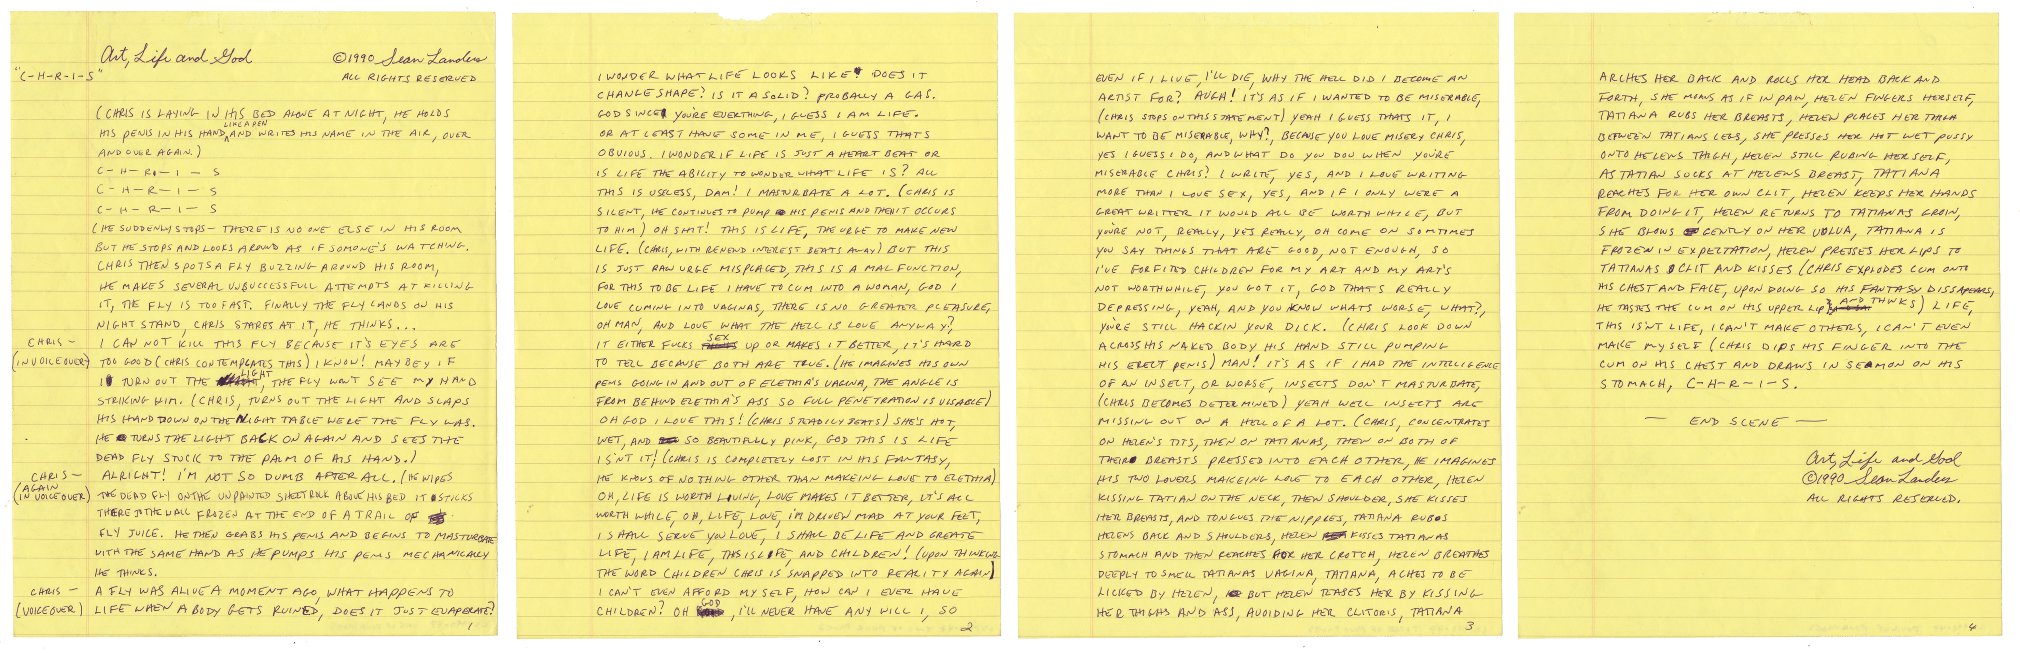 Art, Life and God ©1990 Sean Landers
"C-H-R-I-S" ALL RIGHTS RESERVED
(CHRIS IS LAYING IN HIS BED ALONE AT NIGHT, HE HOLDS
HIS PENIS IN HIS HAND LIKE A PEN AND WRITES HIS NAME IN THE AIR, OVER
AND OVER AGAIN.)
C-H-R-I-S
C-H-R-I-S
C-H-R-I-S
(HE SUDDENLY STOPS- THERE IS NO ONE ELSE IN HIS ROOM
BUT HE STOPS AND LOOKS AROUND AS IF SOMONE'S WATCHING.
CHRIS THEN SPOTS A FLY BUZZING AROUND HIS ROOM,
HE MAKES SEVERAL UNSUCCESSFULL ATTEMPTS AT KILLING
IT, THE FLY IS TOO FAST. FINALLY THE FLY LANDS ON HIS
NIGHT STAND, CHRIS STARES AT IT, HE THINKS...
CHRIS- I CAN NOT KILL THIS FLY BECAUSE IT'S EYES ARE
(IN VOICE OVER) TOO GOOD (CHRIS CONTEMPLATES THIS) I KNOW! MAYBEY IF
I TURN OUT THE LIGHT, THE FLY WON'T SEE MY HAND
STRIKING HIM. (CHRIS, TURNS OUT THE LIGHT AND SLAPS
HIS HAND DOWN ON THE NIGHT TABLE WERE THE FLY WAS.
HE TURNS THE LIGHT BACK ON AGAIN AND SEES THE
DEAD FLY STUCK TO THE PALM OF HIS HAND.)
CHRIS- ALRIGHT! I'M NOT SO DUMB AFTER ALL. (HE WIPES
(AGAIN IN VOICEOVER) THE DEAD FLY ON THE UNPAINTED SHEETROCK ABOVE HIS BED IT STICKS
THERE TO THE WALL FROZEN AT THE END OF A TRAIL OF
FLY JUICE. HE THEN GRABS HIS PENIS AND BEGINS TO MASTURBATE
WITH THE SAME HAND AS HE PUMPS HIS PENIS MECHANICALLY
HE THINKS.
CHRIS- A FLY WAS ALIVE A MOMENT AGO, WHAT HAPPENS TO
(VOICEOVER) LIFE WHEN A BODY GETS RUINED, DOES IT JUST EVAPERATE?
1
I WONDER WHAT LIFE LOOKS LIKE? DOES IT
CHANGE SHAPE? IS IT A SOLID? PROBALLY A GAS.
GOD SINCE YOU'RE EVERTHING, I GUESS I AM LIFE.
OR AT LEAST HAVE SOME IN ME, I GUESS THAT'S
OBVIOUS. I WONDER IF LIFE IS JUST A HEART BEAT OR
IS LIFE THE ABILITY TO WONDER WHAT LIFE IS? ALL
THIS IS USELESS, DAM! I MASTURBATE A LOT. (CHRIS IS
SILENT, HE CONTINUES TO PUMP HIS PENIS AND THEN IT OCCURS
TO HIM) OH SHIT! THIS IS LIFE, THE URGE TO MAKE NEW
LIFE. (CHRIS, WITH RENEWED INTEREST BEATS AWAY) BUT THIS
IS JUST RAW URGE MISPLACED, THIS IS A MALFUNCTION,
FOR THIS TO BE LIFE I HAVE TO CUM INTO A WOMAN, GOD I
LOVE CUMING INTO VAGINAS, THERE IS NO GREATER PLEASURE,
OH MAN, AND LOVE WHAT THE HELL IS LOVE ANYWAY?,
IT EITHER FUCKS SEX UP OR MAKES IT BETTER, IT'S HARD
TO TELL BECAUSE BOTH ARE TRUE. (HE IMAGINES HIS OWN
PENIS GOING IN AND OUT OF ELETHIA'S VAGINA, THE ANGLE IS
FROM BEHIND ELETHIA'S ASS SO FULL PENETRATION IS VISABLE)
OH GOD I LOVE THIS! (CHRIS STEADILY BEATS) SHE'S HOT,
WET, AND SO BEAUTIFULLY PINK, GOD THIS IS LIFE
ISN'T IT! (CHRIS IS COMPLETELY LOST IN HIS FANTASY,
HE KNOWS OF NOTHING OTHER THAN MAKEING LOVE TO ELETHIA)
OH, LIFE IS WORTH LIVING, LOVE MAKES IT BETTER, IT'S ALL
WORTH WHILE, OH, LIFE, LOVE, I'M DRIVEN MAD AT YOUR FEET,
I SHALL SERVE YOU LOVE, I SHALL BE LIFE AND CREATE
LIFE, I AM LIFE, THIS IS LIFE, AND CHILDREN! (UPON THINKING
THE WORD CHILDREN CHRIS IS SNAPPED INTO REALITY AGAIN)
I CAN'T EVEN AFFORD MYSELF, HOW CAN I EVER HAVE
CHILDREN? OH GOD, I'LL NEVER HAVE ANY WILL I, SO
2
EVEN IF I LIVE, I'LL DIE, WHY THE HELL DID I BECOME AN
ARTIST FOR? AUGH! IT'S AS IF I WANTED TO BE MISERABLE,
(CHRIS STOPS ON THIS STATEMENT) YEAH I GUESS THAT'S IT, I
WANT TO BE MISERABLE, WHY?, BECAUSE YOU LOVE MISERY CHRIS,
YES I GUESS I DO, AND WHAT DO YOU DOU WHEN YOU'RE
MISERABLE CHRIS? I WRITE, YES, AND I LOVE WRITING
MORE THAN I LOVE SEX, YES, AND IF I ONLY WERE A
GREAT WRITTER IT WOULD ALL BE WORTH WHILE, BUT
YOU'RE NOT, REALLY, YES REALLY, OH COME ON SOMTIMES
YOU SAY THINGS THAT ARE GOOD, NOT ENOUGH, SO
I'VE FORFITED CHILDREN FOR MY ART AND MY ART'S
NOT WORTHWHILE, YOU GOT IT, GOD THAT'S REALLY
DEPRESSING, YEAH, AND YOU KNOW WHATS WORSE, WHAT?,
YOU'RE STILL HACKIN YOUR DICK. (CHRIS LOOK DOWN
ACROSS HIS NAKED BODY HIS HAND STILL PUMPING
HIS ERECT PENIS) MAN! IT'S AS IF I HAD THE INTELLIGENCE
OF AN INSECT, OR WORSE, INSECTS DON'T MASTURBATE,
(CHRIS BECOMES DETERMINED) YEAH WELL INSECTS ARE
MISSING OUT ON A HELL OF A LOT. (CHRIS, CONCENTRATES
ON HELEN'S TITS, THEN ON TATIANAS, THEN ON BOTH OF
THEIR BREASTS PRESSED INTO EACH OTHER, HE IMAGINES
HIS TWO LOVERS MAKEING LOVE TO EACH OTHER, HELEN
KISSING TATIAN ON THE NECK, THEN SHOULDER, SHE KISSES
HER BREASTS, AND TONGUES THE NIPPRES, TATIANA RUBS
HELENS BACK AND SHOULDERS, HELEN KISSES TATIANAS
STOMACH AND THEN REACHES FOR HER CROTCH, HELEN BREATHES
DEEPLY TO SMELL TATIANAS VAGINA, TATIANA, ACHES TO BE
LICKED BY HELEN, BUT HELEN TEASES HER BY KISSING
HER THIGHS AND ASS, AVOIDING HER CLITORIS, TATIANA
3
ARCHES HER BACK AND ROLLS HER HEAD BACK AND
FORTH, SHE MOANS AS IF IN PAIN, HELEN FINGERS HERSELF,
TATIANA RUBS HER BREASTS, HELEN PLACES HER THIGH
BETWEEN TATIANS LEGS, SHE PRESSES HER HOT WET PUSSY
ONTO HELENS THIGH, HELEN STILL RUBING HERSELF,
AS TATIAN SUCKS AT HELENS BREAST, TATIANA
REACHES FOR HER OWN CLIT, HELEN KEEPS HER HANDS
FROM DOING IT, HELEN RETURNS TO TATIANAS GROIN,
SHE BLOWS GENTLY ON HER VULVA, TATIANA IS
FROZEN IN EXPECTATION, HELEN PRESSES HER LIPS TO
TATIANAS CLIT AND KISSES (CHRIS EXPLODES CUM ONTO
HIS CHEST AND FACE, UPON DOING SO HIS FANTASY DISSAPEARS,
HE TASTES THE CUM ON HIS UPPER LIP AND THINKS) LIFE,
THIS ISN'T LIFE, I CAN'T MAKE OTHERS, I CAN'T EVEN
MAKE MYSELF (CHRIS DIPS HIS FINGER INTO THE
CUM ON HIS CHEST AND DRAWS IN SEAMON ON HIS
STOMACH, C-H-R-I-S.
— END SCENE —
Art, Life and God
©1990 Sean Landers
ALL RIGHTS RESERVED.
4